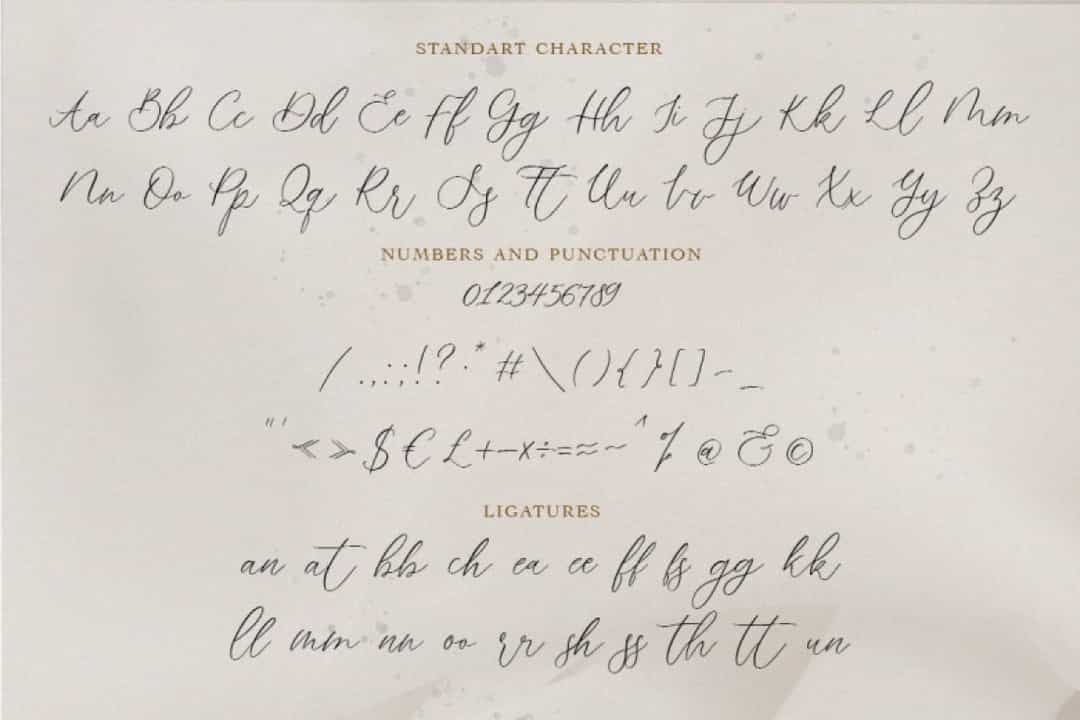 STANDART CHARACTER
Aa Bb Cc Dd Ee Ff Gg Hh Ii Jj Kk Ll Mm
Nn Oo Pp Qq Rr Ss Tt Uu Vv Ww Xx Yy Zz
NUMBERS AND PUNCTUATION
0123456789
/ .,:;!?·* #\(){}[]-_
"'<>$€£+−×÷=≈~^% @ & ©
LIGATURES
an at bb ch ea ee ff fs gg kk
ll mm nn oo rr sh ss th tt un